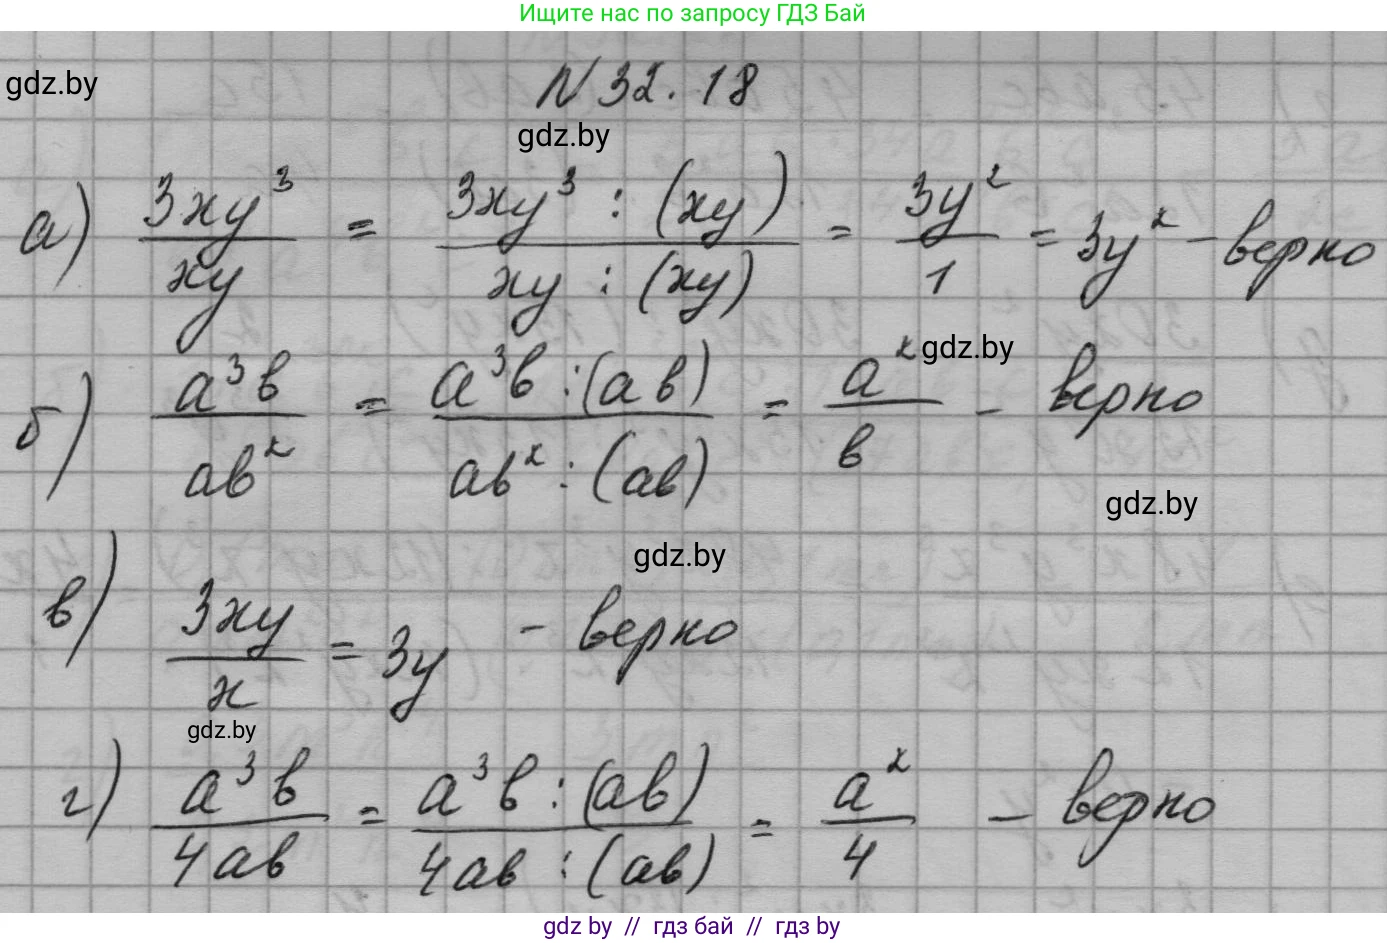 Ищите нас по запросу ГДЗ Бай
gdz.by
N 32.18
gdz.by
а) 3xy³/xy = 3xy³ : (xy)/xy : (xy) = 3y²/1 = 3y² - верно
gdz.by
б) a³b/ab² = a³b : (ab)/ab² : (ab) = a²/b - верно
gdz.by
gdz.by
в) 3xy/x = 3y - верно
gdz.by
г) a³b/4ab = a³b : (ab)/4ab : (ab) = a²/4 - верно
gdz.by // гдз бай // гдз by